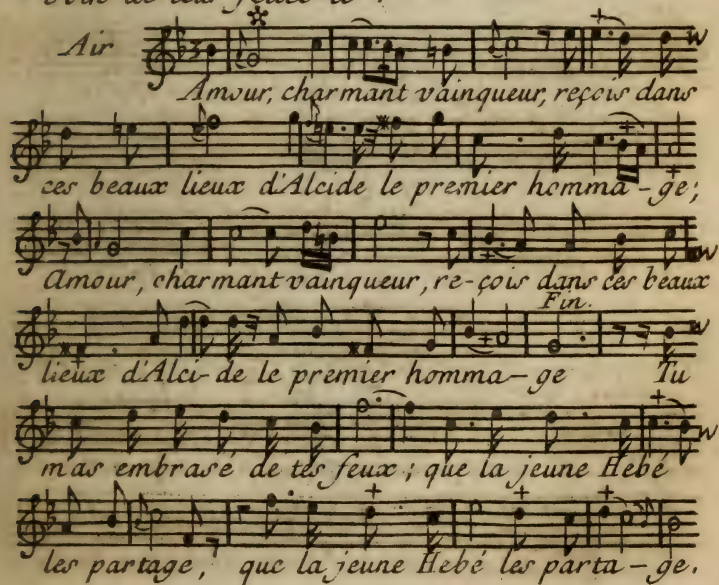 Air
Amour, charmant vainqueur, reçois dans
ces beaux lieux d'Alcide le premier homma-ge;
Amour, charmant vainqueur, re-çois dans ces beaux
Fin.
lieux d'Alci-de le premier homma-ge Tu
m'as embrasé de tes feux; que la jeune Hebé
les partage, que la jeune Hebé les parta-ge.